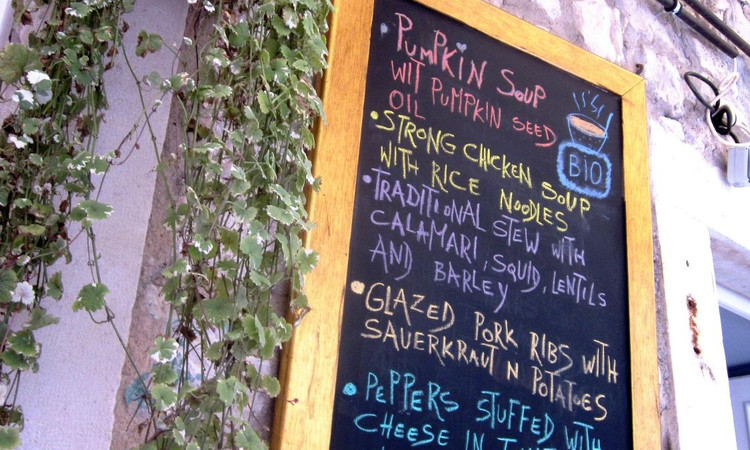 • PUMPKIN SOUP
WIT PUMPKIN SEED
OIL
BIO
• STRONG CHICKEN SOUP
WITH RICE NOODLES
• TRADITIONAL STEW WITH
CALAMARI, SQUID, LENTILS
AND BARLEY
• GLAZED PORK RIBS WITH
SAUERKRAUT N POTATOES
• PEPPERS STUFFED WITH
CHEESE IN